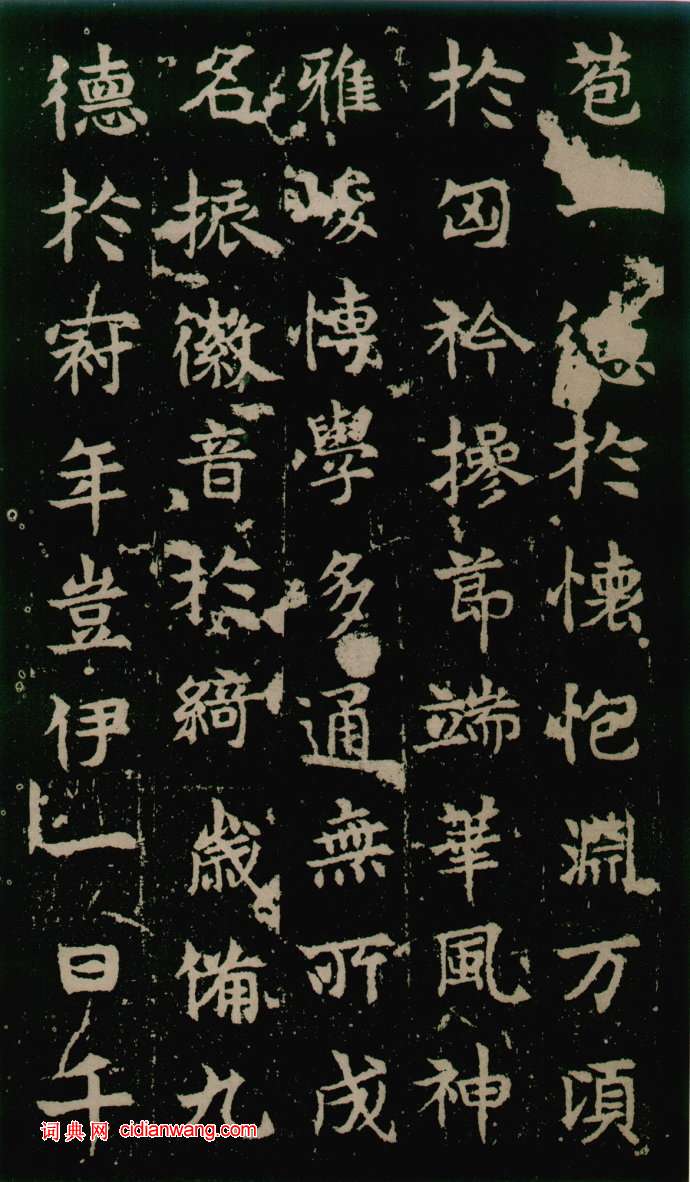 苞德於懷抱淵万頃
於匈衿操節端華風神
雅峻博學多通無所成
名振徽音於綺歲備九
德於冠年豈伊一日千
词典网 cidianwang.com